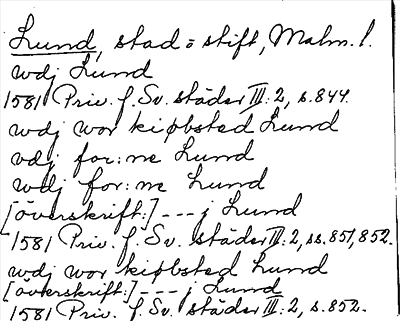 Lund, stad o stift, Malm. l.
wdj Lund
1581 Priv. f. Sv. städer III: 2, s. 844.
wdj wor kiøbsted Lund
vdj for:ne Lund
wdj for:ne Lund
[överskrift:] --- j Lund
1581 Priv. f. Sv. städer III: 2, ss. 851, 852.
wdj wor kiøbsted Lund
[överskrift:] --- j Lund
1581 Priv. f. Sv. städer III: 2, s. 852.